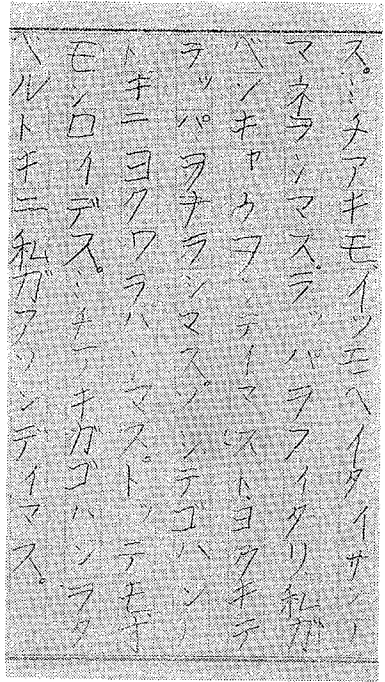 ス。ミチアキモ、イツモヘイタイサンノ
マネヲシマス。ラッパヲフイタリ私ガ
ベンキャウヲシテイマスト、ヨクキテ
ラッパヲナラシマス。ソシテゴハンノ
トキニヨクワラハシマス。トッテモオ
モシロイデス。ミチアキガゴハンヲタ
ベルトキニ私ガアソンデイマス。